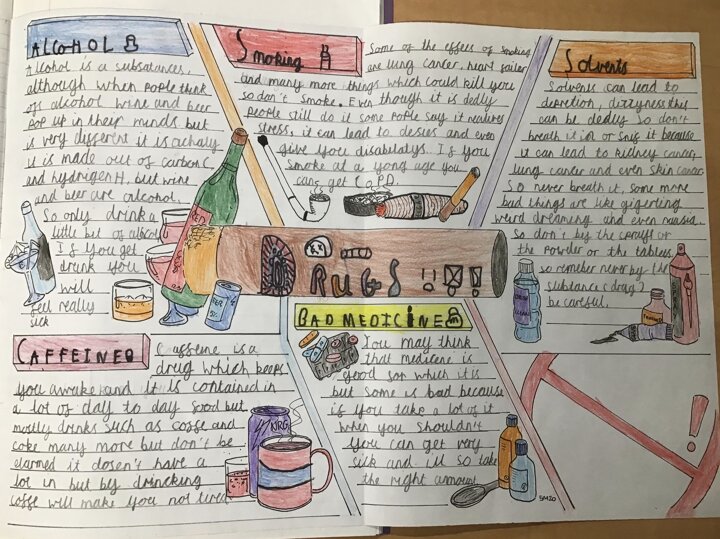 ALCOHOL
Alcohol is a substances,
although when pople think
of alcohol wine and beer
pop up in their minds but
is very different it is actualy
it is made out of carbon C
and hydrogen H, but wine
and beer are alcohol.
So only drink a
little bit of alcohol
If you get
drunk you
will
feel really
sick
BEER
5%
Smoking
Some of the effects of smoking
are lung cancer, heart failer
and many more things which could kill you
so don't smoke. Even though it is dedly
people still do it some pople say it relieves
stress, it can lead to desies and even
give you disabilatys. If you
smoke at a yong age you
can get CoPD.
Solvents
Solvents can lead to
depretion, dizzyness this
can be dedly so don't
breath it in or snif it because
it can lead to kidney cancer,
lung cancer and even skin cancer
So never breath it, some more
bad things are like
weird dreaming and even nausia.
So don't by the spray or
the powder or the tablets
so remeber never by the
substance (drug)
be careful.
DRUGS !!!!
CAFFEINE
Caffeine is a
drug which keeps
you awake and it is contained in
a lot of day to day food but
mostly drinks such as coffe and
coke many more but don't be
alarmed it dosen't have a
lot in but by drincking
coffe will make you not tired.
NRG
BAD MEDICINE
You may think
that medicine is
good for which it is
but some is bad because
if you take a lot of it
when you shouldn't
you can get very
sick and ill so take
the right amount
!